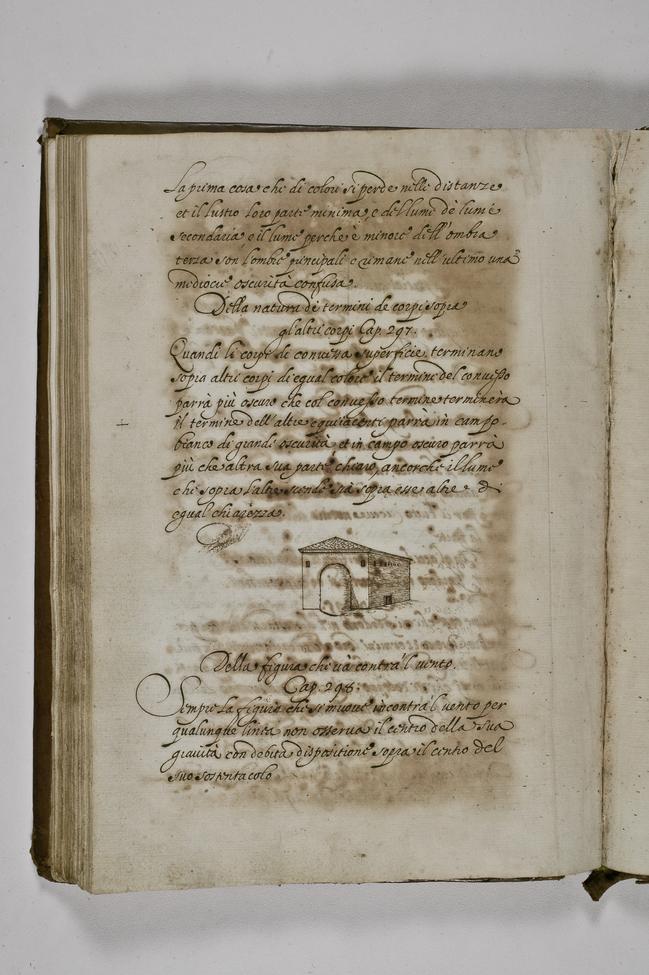 La prima cosa che di colori si perde nelle distanze
et il lustro loro parte minima, e del lume de lumi
secondaria e il lume perche è minore dell'ombra
terza son l'ombre principali e rimane nell'ultimo una
mediocre oscurità confusa.
Della natura de termini de corpi sopra
gl'altri corpi Cap. 297.
Quandi li corpi di convessa superficie terminano
sopra altri corpi di egual colore il termine del convesso
parrà più oscuro che col convesso termine terminera
il termine dell'altre equiiacenti parrà in campo
bianco di grande oscurità et in campo oscuro parrà
più che altra sua parte chiaro, ancorche il lume
che sopra l'altre scende sia sopra esse altre di
egual chiarezza.
Della figura che và contra'l vento.
Cap. 298.
Sempre la figura che si muove incontra'l vento per
qualunque linea non osserva il centro della sua
gravità con debita dispositione sopra il centro del
suo sostentacolo